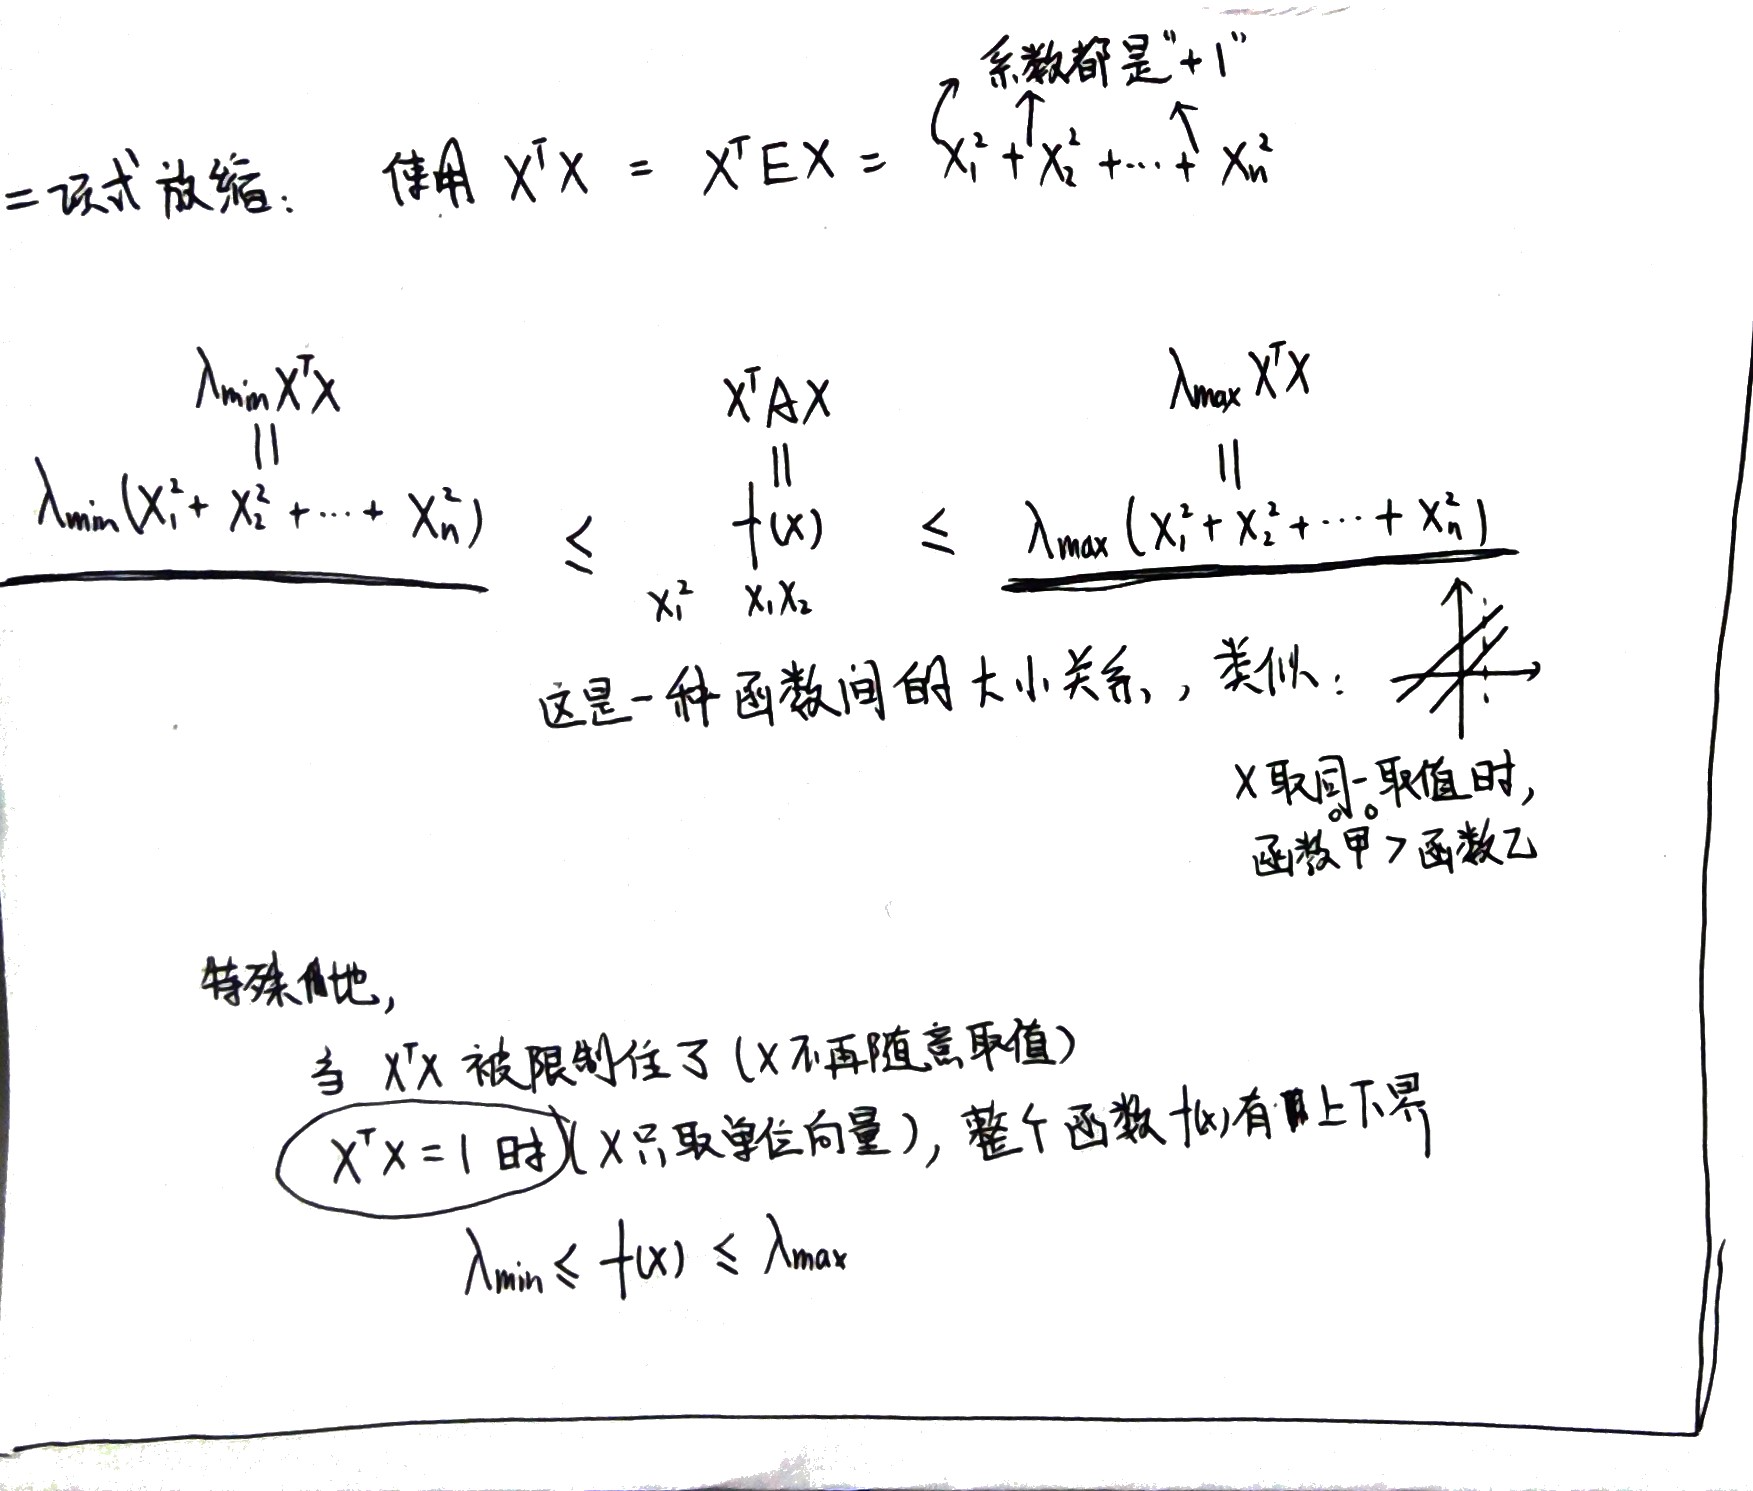 系数都是“+1”
二项式放缩: 使用 XᵀX = XᵀEX = X₁² + X₂² + ... + Xₙ²
λmin XᵀX XᵀAX λmax XᵀX
|| || ||
λmin (X₁² + X₂² + ... + Xₙ²) ≤ f(x) ≤ λmax (X₁² + X₂² + ... + Xₙ²)
X₁² X₁X₂
这是一种函数间的大小关系, 类似:
X取同一取值时,
函数甲 > 函数乙
特殊地,
当 XᵀX 被限制住了 (X不再随意取值)
XᵀX = 1 时 (X只取单位向量), 整个函数f(x)有上下界
λmin ≤ f(x) ≤ λmax